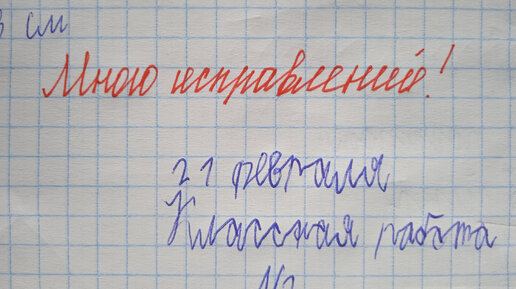 см
Много исправлений!
21 февраля
Классная работа